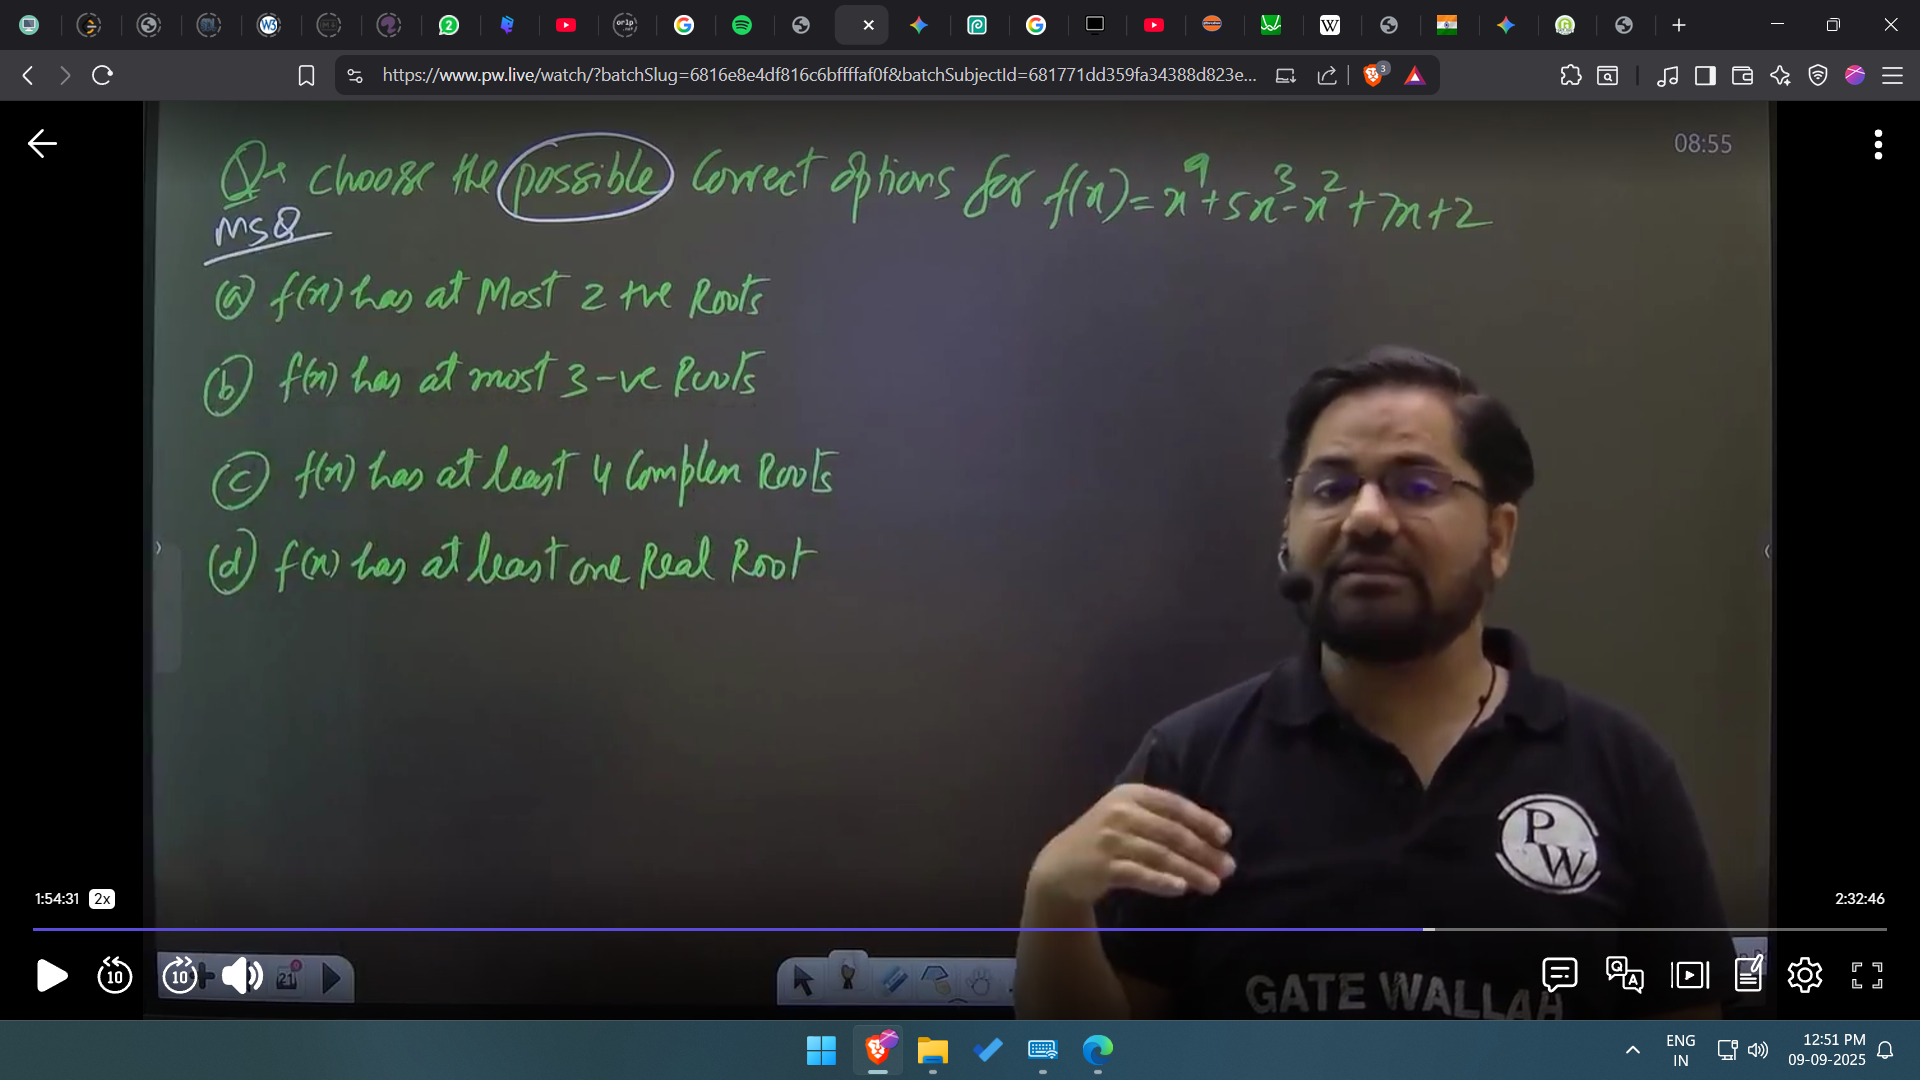 2
https://www.pw.live/watch/?batchSlug=6816e8e4df816c6bffffaf0f&batchSubjectId=681771dd359fa34388d823e...
3
08:55
Q: choose the possible Correct options for f(x) = x⁹+5x³-x²+7x+2
MSQ
(a) f(x) has at Most 2 +ve Roots
(b) f(x) has at most 3 -ve Roots
(c) f(x) has at least 4 Complex Roots
(d) f(x) has at least one Real Root
PW
1:54:31 2x
2:32:46
10 10 21
GATE WALLAH
ENG
IN
12:51 PM
09-09-2025